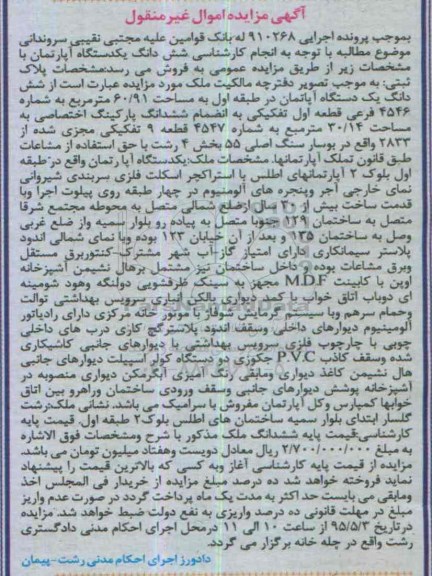 آگهی مزایده اموال غیرمنقول
بموجب پرونده اجرایی ۹۱۰۲۶۸ له بانک قوامین علیه مجتبی نقیبی سروندانی
موضوع مطالبه با توجه به انجام کارشناسی شش دانگ یکدستگاه آپارتمان با
مشخصات زیر از طریق مزایده عمومی به فروش می رسد:مشخصات پلاک
ثبتی: به موجب تصویر دفترچه مالکیت ملک مورد مزایده عبارت است از شش
دانگ یک دستگاه آپاتمان در طبقه اول به مساحت ۶۰/۹۱ مترمربع به شماره
۴۵۴۶ فرعی قطعه اول تفکیکی به انضمام ششدانگ پارکینگ اختصاصی به
مساحت ۳۰/۱۴ مترمیع به شماره ۴۵۴۷ قطعه ۹ تفکیکی مجزی شده از
۲۸۳۳ واقع در بوسار سنگ اصلی ۵۵ بخش ۴ رشت با حق استفاده از مشاعات
طبق قانون تملک آپارتمانها. مشخصات ملک:یکدستگاه آپارتمان واقع در طبقه
اول بلوک ۲ آپارتمانهای اطلس با استراکچر اسکلت فلزی سربندی شیروانی
نمای خارجی آجر وپنجره های آلومنیوم در چهار طبقه روی پیلوت اجرا وبا
قدمت ساخت بیش از ۲۰ سال ازضلع شمالی متصل به محوطه مجتمع شرقا
متصل به ساختمان ۱۲۹ جنوبا متصل به پیاده رو بلوار سمیه واز ضلع غربی
وصل به ساختمان ۱۳۵ و بعد از آن خیابان ۱۲۳ بوده وبا نمای شمالی اندود
پلاستر سیمانکاری دارای امتیاز گاز-آب شهر مشترک-کنتوربرق مستقل
وبرق مشاعات بوده و داخل ساختمان نیز مشتمل برهال نشیمن آشپزخانه
اوپن با کابینت M.D.F مجهز به سینک ظرفشویی دولنگه وهود شومینه
ای دوباب اتاق خواب با کمد دیواری بالکن انباری سرویس بهداشتی توالت
وحمام سرهم وبا سیستم گرمایش شوفاژ با موتور خانه مرکزی دارای رادیاتور
آلومینیوم دیوارهای داخلی وسقف اندود پلاسترگچ کاری درب های داخلی
چوبی با چارچوب فلزی سرویس بهداشتی با دیوارهای جانبی کاشیکاری
شده وسقف کاذب P.V.C جکوزی دو دستگاه کولر اسپیلت دیوارهای جانبی
هال نشیمن کاغذ دیواری ومابقی رنگ آمیزی آبگرمکن دیواری منصوبه در
آشپزخانه پوشش دیوارهای جانبی وسقف ورودی ساختمان وراهرو بین اتاق
خوابها کمپارس وکل آپارتمان مفروش با سرامیک می باشد. نشانی ملک:رشت
گلسار ابتدای بلوار سمیه ساختمان های اطلس بلوک۲ طبقه اول. قیمت پایه
کارشناسی:قیمت پایه ششدانگ ملک مذکور با شرح ومشخصات فوق الاشاره
به مبلغ ۲/۷۰۰/۰۰۰/۰۰۰ ریال معادل دویست وهفتاد میلیون تومان می باشد.
مزایده از قیمت پایه کارشناسی آغاز وبه کسی که بالاترین قیمت را پیشنهاد
نماید فروخته خواهد شد ده درصد مبلغ مزایده از خریدار فی المجلس اخذ
ومابقی می بایست حد اکثر به مدت یک ماه پرداخت گردد در صورت عدم واریز
مبلغ در مهلت قانونی ده درصد واریزی به نفع دولت ضبط خواهد شد. مزایده
در تاریخ ۹۵/۵/۳ از ساعت ۱۰ الی ۱۱ درمحل اجرای احکام مدنی دادگستری
رشت واقع در چله خانه برگزار می گردد.
دادورز اجرای احکام مدنی رشت-پیمان